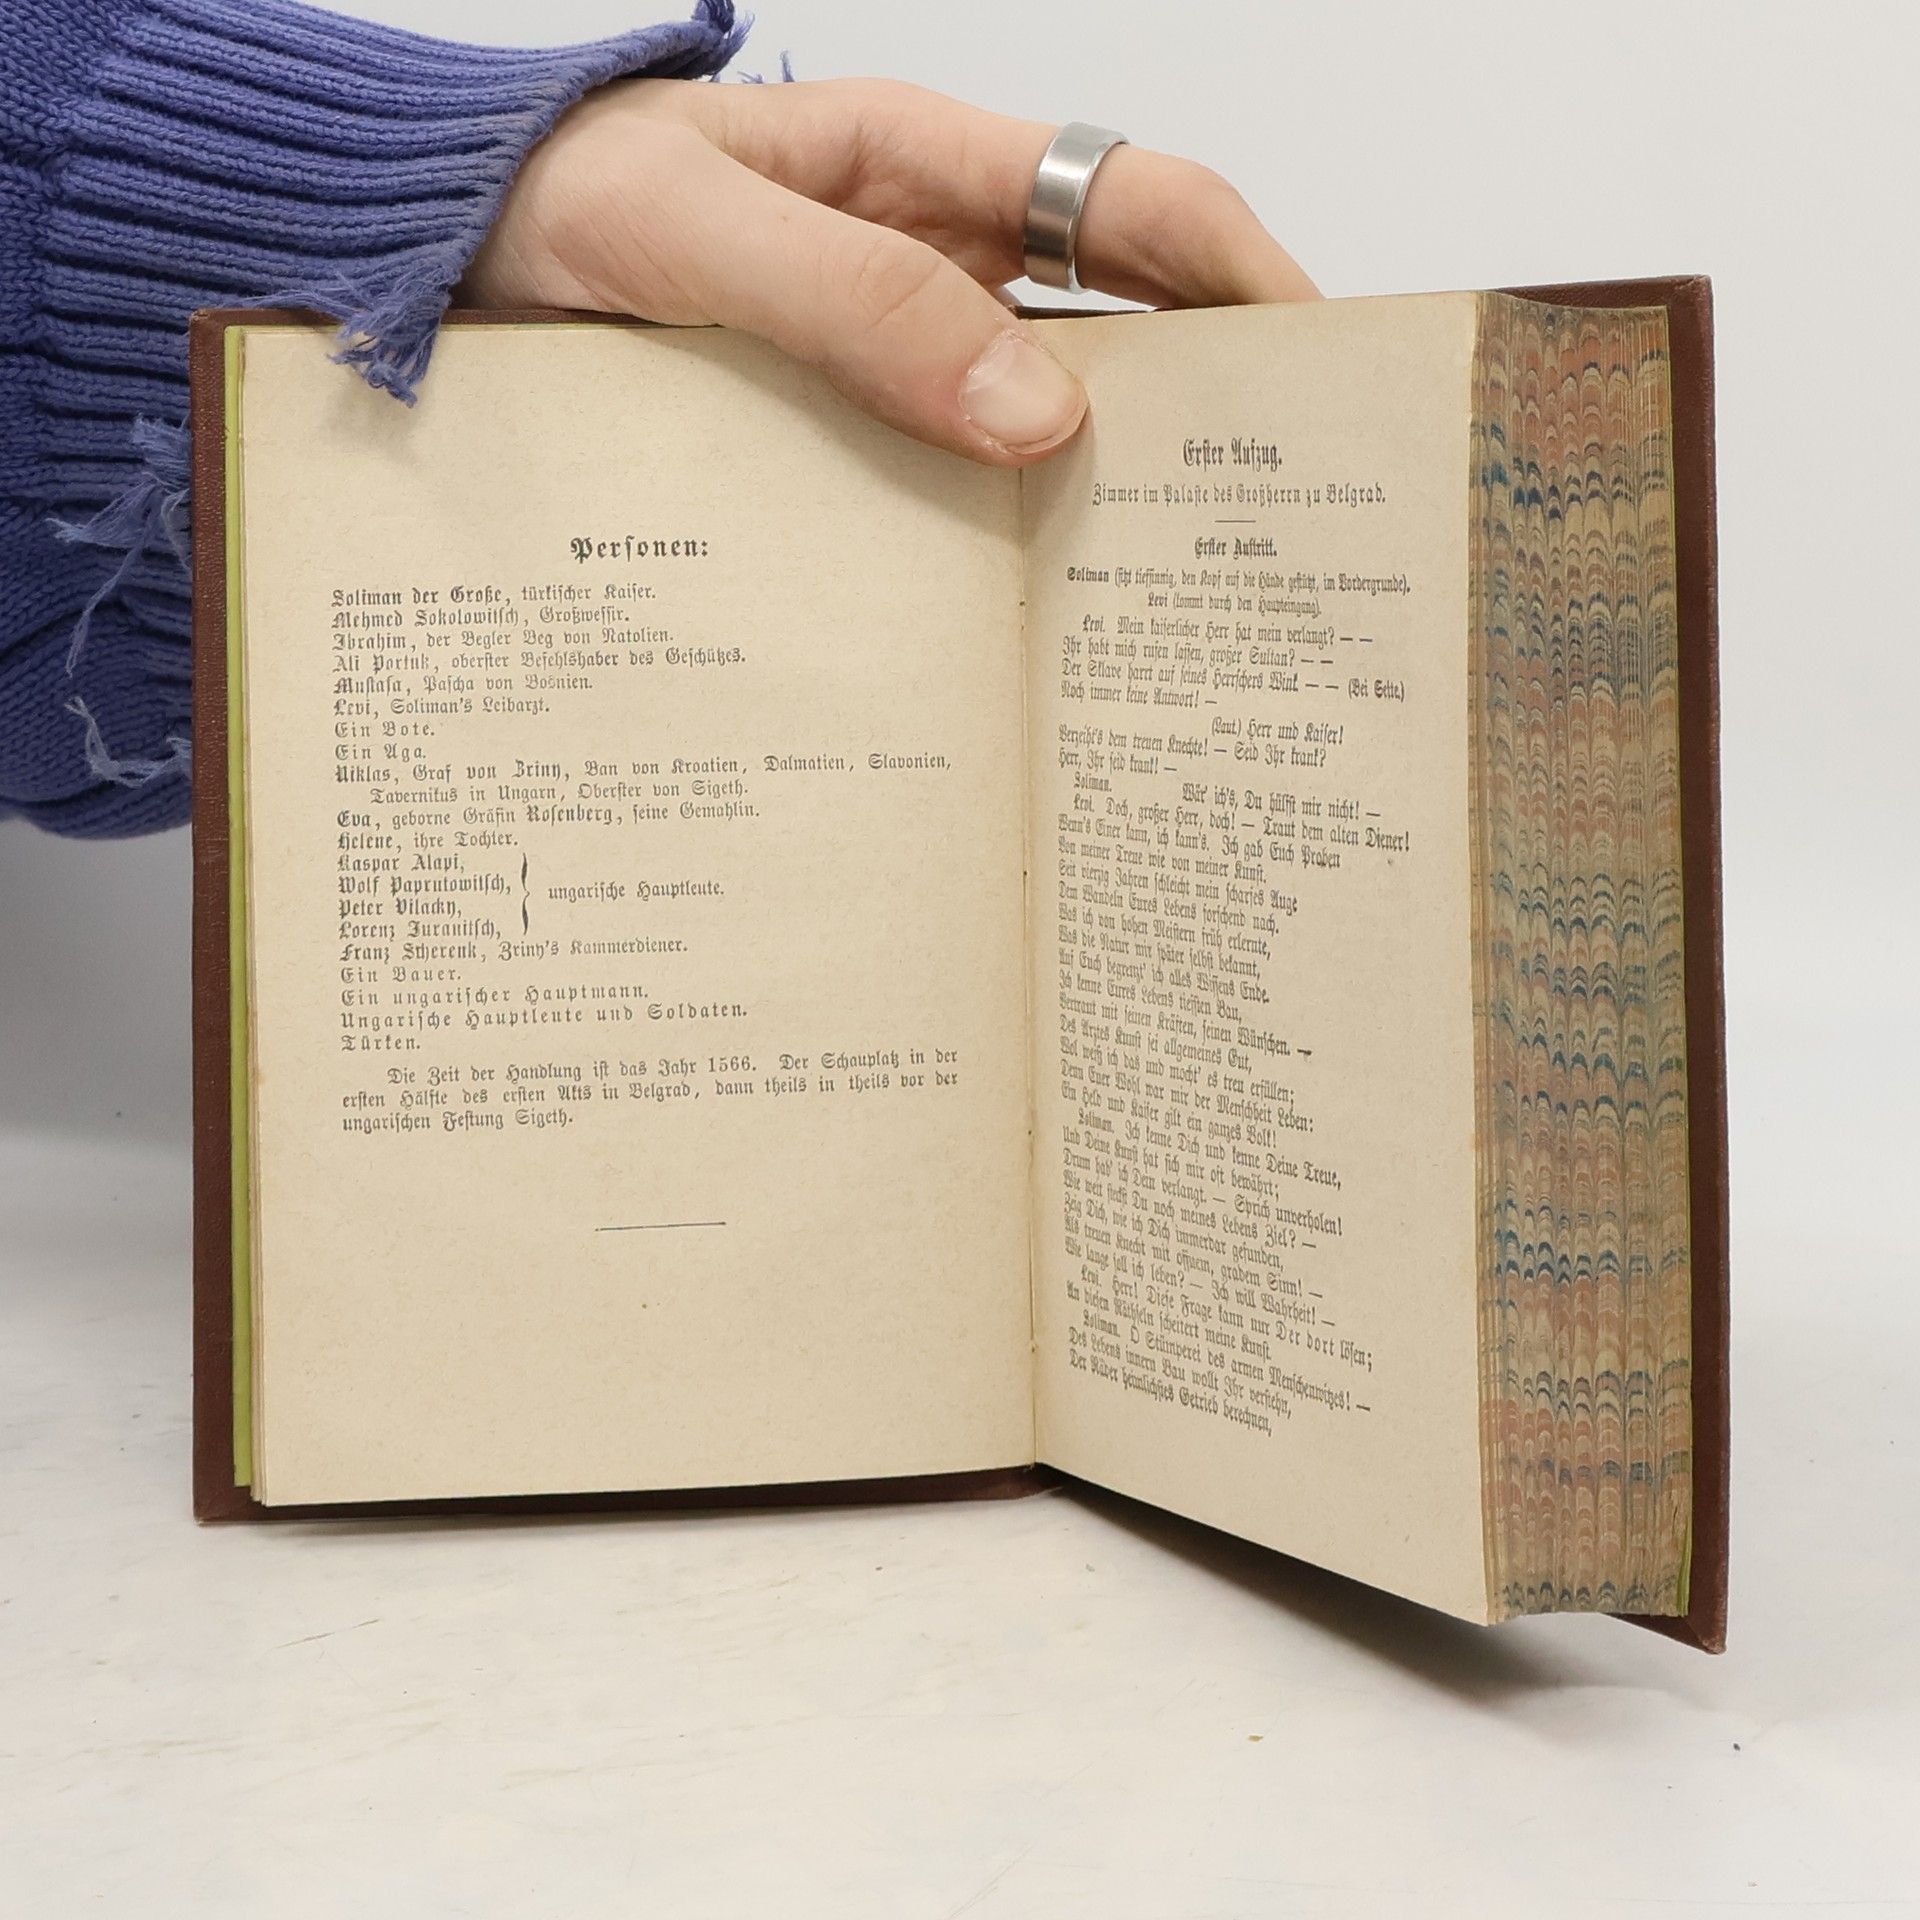 Personen:
Soliman der Große, türkischer Kaiser.
Mehmed Sokolowitsch, Großwessir.
Ibrahim, der Begler Beg von Natolien.
Ali Portuk, oberster Befehlshaber des Geschützes.
Mustafa, Pascha von Bosnien.
Levi, Soliman's Leibarzt.
Ein Bote.
Ein Aga.
Niklas, Graf von Zriny, Ban von Kroatien, Dalmatien, Slavonien,
Tavernikus in Ungarn, Oberster von Sigeth.
Eva, geborne Gräfin Rosenberg, seine Gemahlin.
Helene, ihre Tochter.
Kaspar Alapi,
Wolf Paprutowitsch,
Peter Vilacky,
Lorenz Juranitsch,
ungarische Hauptleute.
Franz Scherenk, Zriny's Kammerdiener.
Ein Bauer.
Ein ungarischer Hauptmann.
Ungarische Hauptleute und Soldaten.
Türken.
Die Zeit der Handlung ist das Jahr 1566. Der Schauplatz in der
ersten Hälfte des ersten Akts in Belgrad, dann theils in theils vor der
ungarischen Festung Sigeth.
Erster Aufzug.
Zimmer im Palaste des Großherrn zu Belgrad.
Erster Auftritt.
Soliman (sitzt tiefsinnig, den Kopf auf die Hände gestützt, im Vordergrunde).
Levi (kommt durch den Haupteingang).
Levi. Mein kaiserlicher Herr hat mein verlangt? — —
Ihr habt mich rufen lassen, großer Sultan? — —
Der Sklave harrt auf seines Herrschers Wink. — — (Bei Seite.)
Noch immer keine Antwort! —
(Laut.) Herr und Kaiser!
Verzeiht's dem treuen Knechte! — Seid Ihr krank?
Herr, Ihr seid krank! —
Soliman. Wär' ich's, Du hülfst mir nicht! —
Levi. Doch, großer Herr, doch! — Traut dem alten Diener!
Wenn's Einer kann, ich kann's. Ich gab Euch Proben
Von meiner Treue wie von meiner Kunst.
Seit vierzig Jahren schleicht mein scharfes Auge
Dem Wandeln Eures Lebens forschend nach.
Was ich von hohen Meistern früh erlernte,
Was die Natur mir später selbst bekannt,
Auf Euch begrenzt' ich alles Wissens Ende.
Ich kenne Eures Lebens tiefsten Bau,
Vertraut mit seinen Kräften, seinen Wünschen. —
Des Arztes Kunst sei allgemeines Gut,
Wol weiß ich das und mocht' es treu erfüllen;
Denn Euer Wohl war mir der Menschheit Leben:
Ein Held und Kaiser gilt ein ganzes Volk!
Soliman. Ich kenne Dich und kenne Deine Treue,
Und Deine Kunst hat sich mir oft bewährt;
Drum hab' ich Dein verlangt. — Sprich unverholen!
Wie weit steckst Du noch meines Lebens Ziel? —
Zeig Dich, wie ich Dich immerdar gefunden,
Als treuen Knecht mit offnem, gradem Sinn! —
Wie lange soll ich leben? — Ich will Wahrheit! —
Levi. Herr! Diese Frage kann nur Der dort lösen;
An diesen Räthseln scheitert meine Kunst.
Soliman. O Stümperei des armen Menschenwitzes! —
Des Lebens innern Bau wollt Ihr verstehn,
Der Räder heimlichstes Getrieb berechnen,